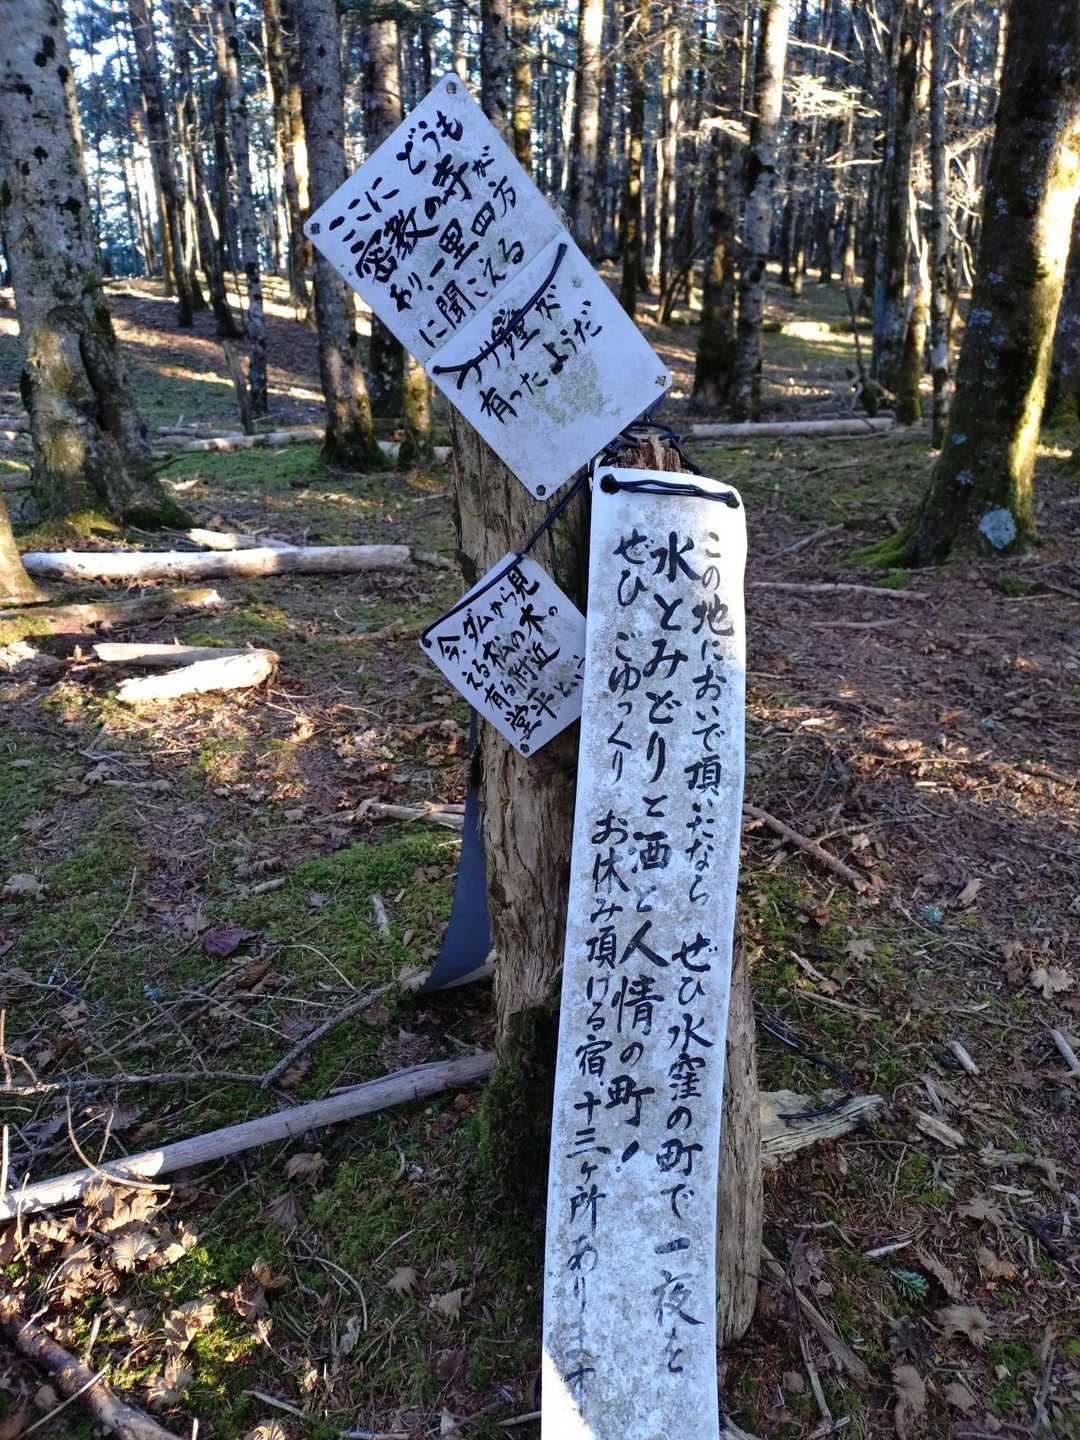 ここに どうも
密教の寺が
あり、一里四方
に聞こえる
堂が
有ったようだ
今、ダムから見
える松の木の
有る附近
堂平という
この地においで頂いたなら ぜひ水窪の町で一夜を
水とみどりと酒と人情の町！
ぜひ ごゆっくり お休み頂ける宿、十三ヶ所あります